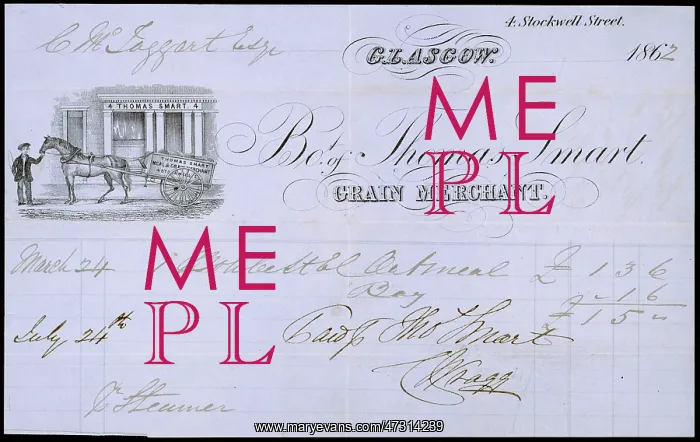 4 Stockwell Street.
C McTaggart Esqr
GLASGOW. 1862
4 THOMAS SMART. 4
THOMAS SMART
MEAL & GRAIN MERCHANT
Bot. of Thomas Smart.
GRAIN MERCHANT.
ME
PL
March 24 Oatmeal £ 1 3 6
Bag " 1 6
£ 1 5 "
July 24th Paid Thos Smart
ME
PL
Pr Steamer
www.maryevans.com/47314239